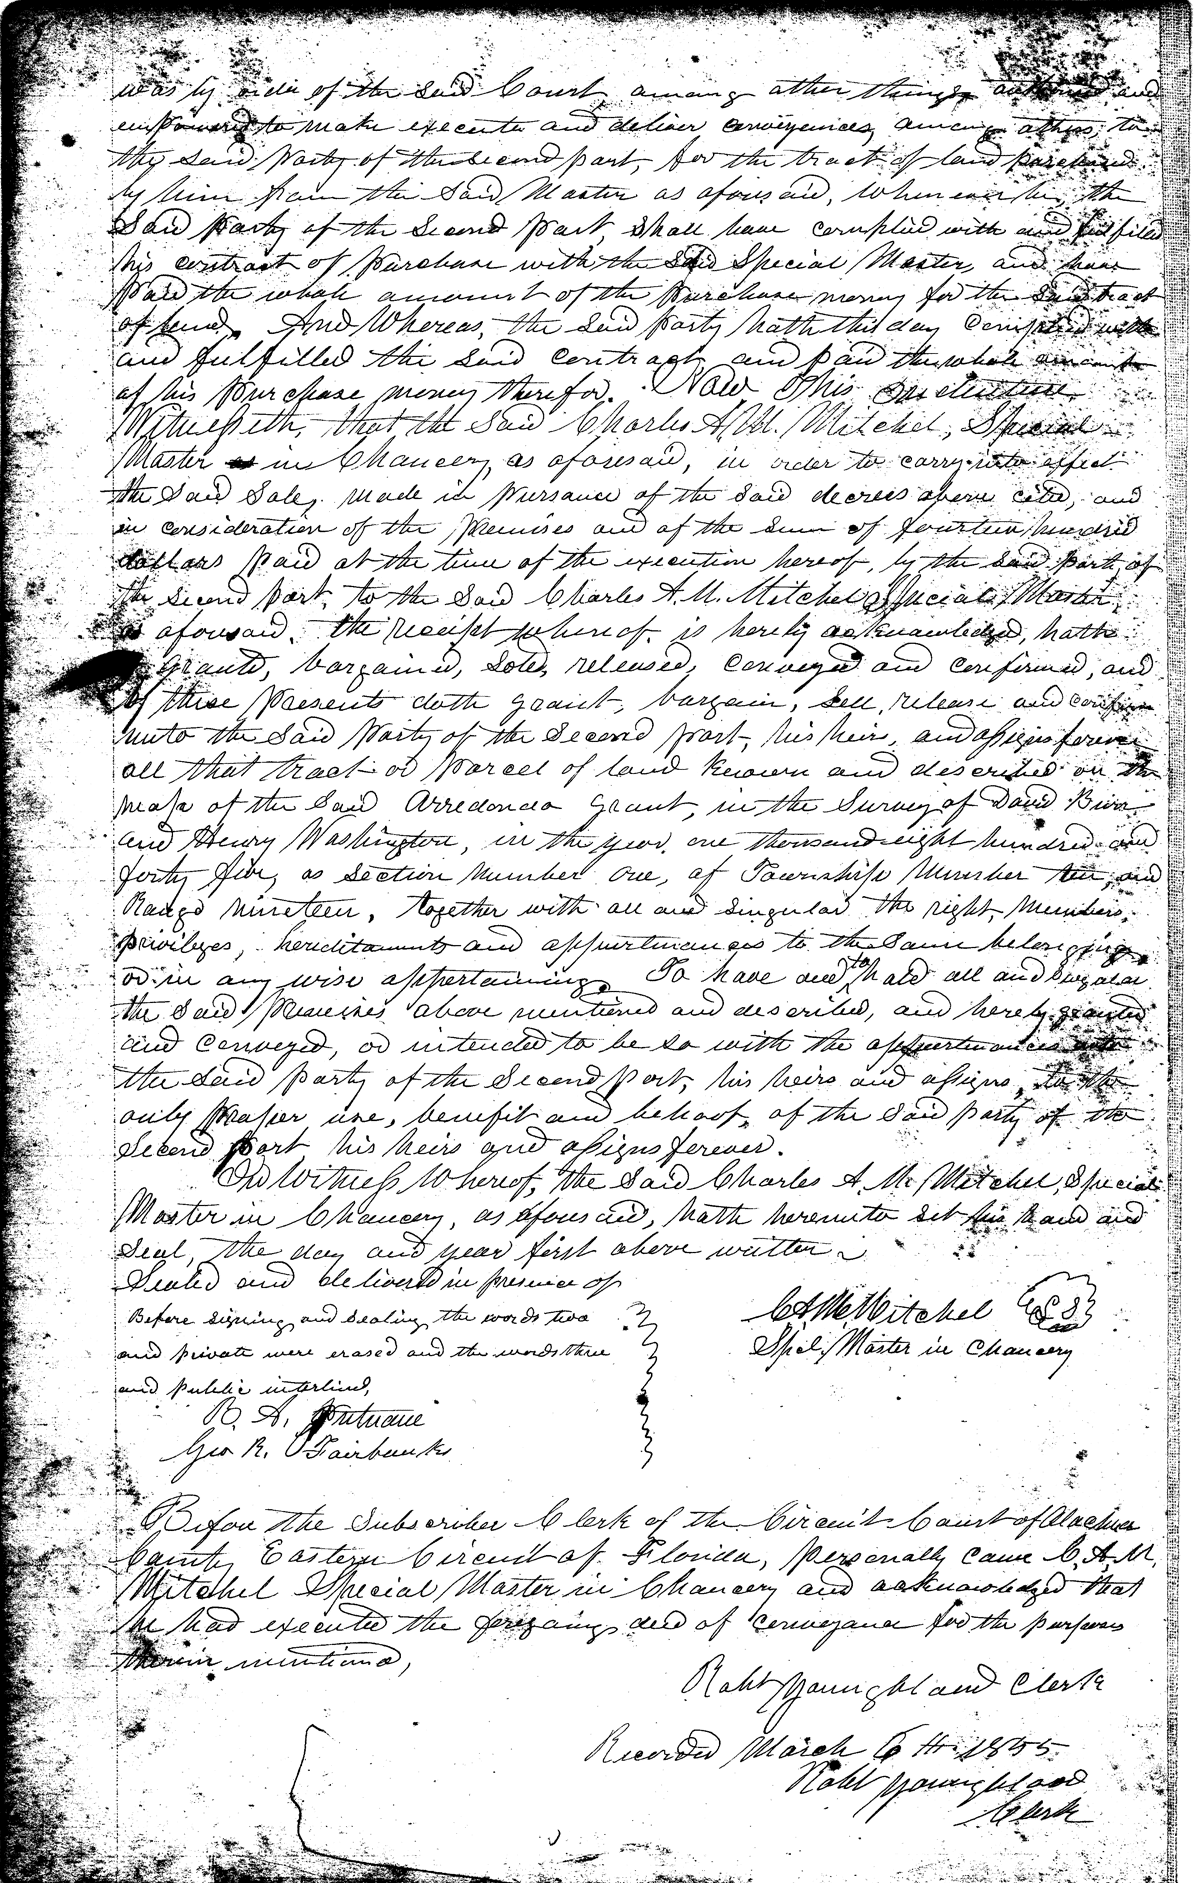 was by order of the said Court among other things authorised and
empowered to make execute and deliver conveyances, among others, to
the said Party of the second part, for the tract of land purchased
by him from the said Master as aforesaid, whenever he, the
said Party of the Second Part shall have complied with and fulfilled
his contract of Purchase with the said Special Master, and have
Paid the whole amount of the Purchase money for the said tract
of land. And Whereas, the said Party hath this day complied with
and fulfilled the said contract and paid the whole amount
of his Purchase money therefor. Now This Indenture
Witnesseth, that the said Charles A. M. Mitchel, Special
Master in Chancery, as aforesaid, in order to carry into effect
the said Sale, made in Pursuance of the said decrees above cited, and
in consideration of the Premises and of the sum of fourteen hundred
dollars paid at the time of the execution hereof, by the said Party of
the second part, to the said Charles A. M. Mitchel Special Master,
as aforesaid, the receipt whereof is hereby acknowledged, hath
granted, bargained, sold, released, conveyed and confirmed, and
by these Presents doth grant, bargain, sell, release and confirm
unto the said Party of the Second part, his heirs, and assigns forever
all that tract or parcel of land known and described on the
map of the said Arredondo grant, in the Survey of David
and Henry Washington, in the year one thousand eight hundred and
forty five, as Section Number One, of Township Number ten, and
Range nineteen, together with all and singular the right, members,
privileges, hereditaments and appurtenances to the same belonging
or in any wise appertaining. To have and to hold all and singular
the said Premises above mentioned and described, and hereby granted
and conveyed, or intended to be so with the appurtenances unto
the said party of the Second Part, his heirs and assigns, to the
only proper use, benefit and behoof, of the said Party of the
Second Part his heirs and assigns forever.
In Witness Whereof, the said Charles A. M. Mitchel, Special
Master in Chancery, as aforesaid, hath hereunto set his hand and
seal, the day and year first above written
Sealed and delivered in presence of
Before signing and sealing the words two
and private were erased and the words three
and public interlined,
C A M Mitchel L S
Spcl. Master in Chancery
B. A. Putnam
Geo R. Fairbanks
Before the Subscriber Clerk of the Circuit Court of Alachua
County Eastern Circuit of Florida, personally came C. A. M.
Mitchel Special Master in Chancery and acknowledged that
he had executed the foregoing deed of conveyance for the purposes
therein mentioned,
Robt Youngblood Clerk
Recorded March 6th 1855
Robt Youngblood
Clerk